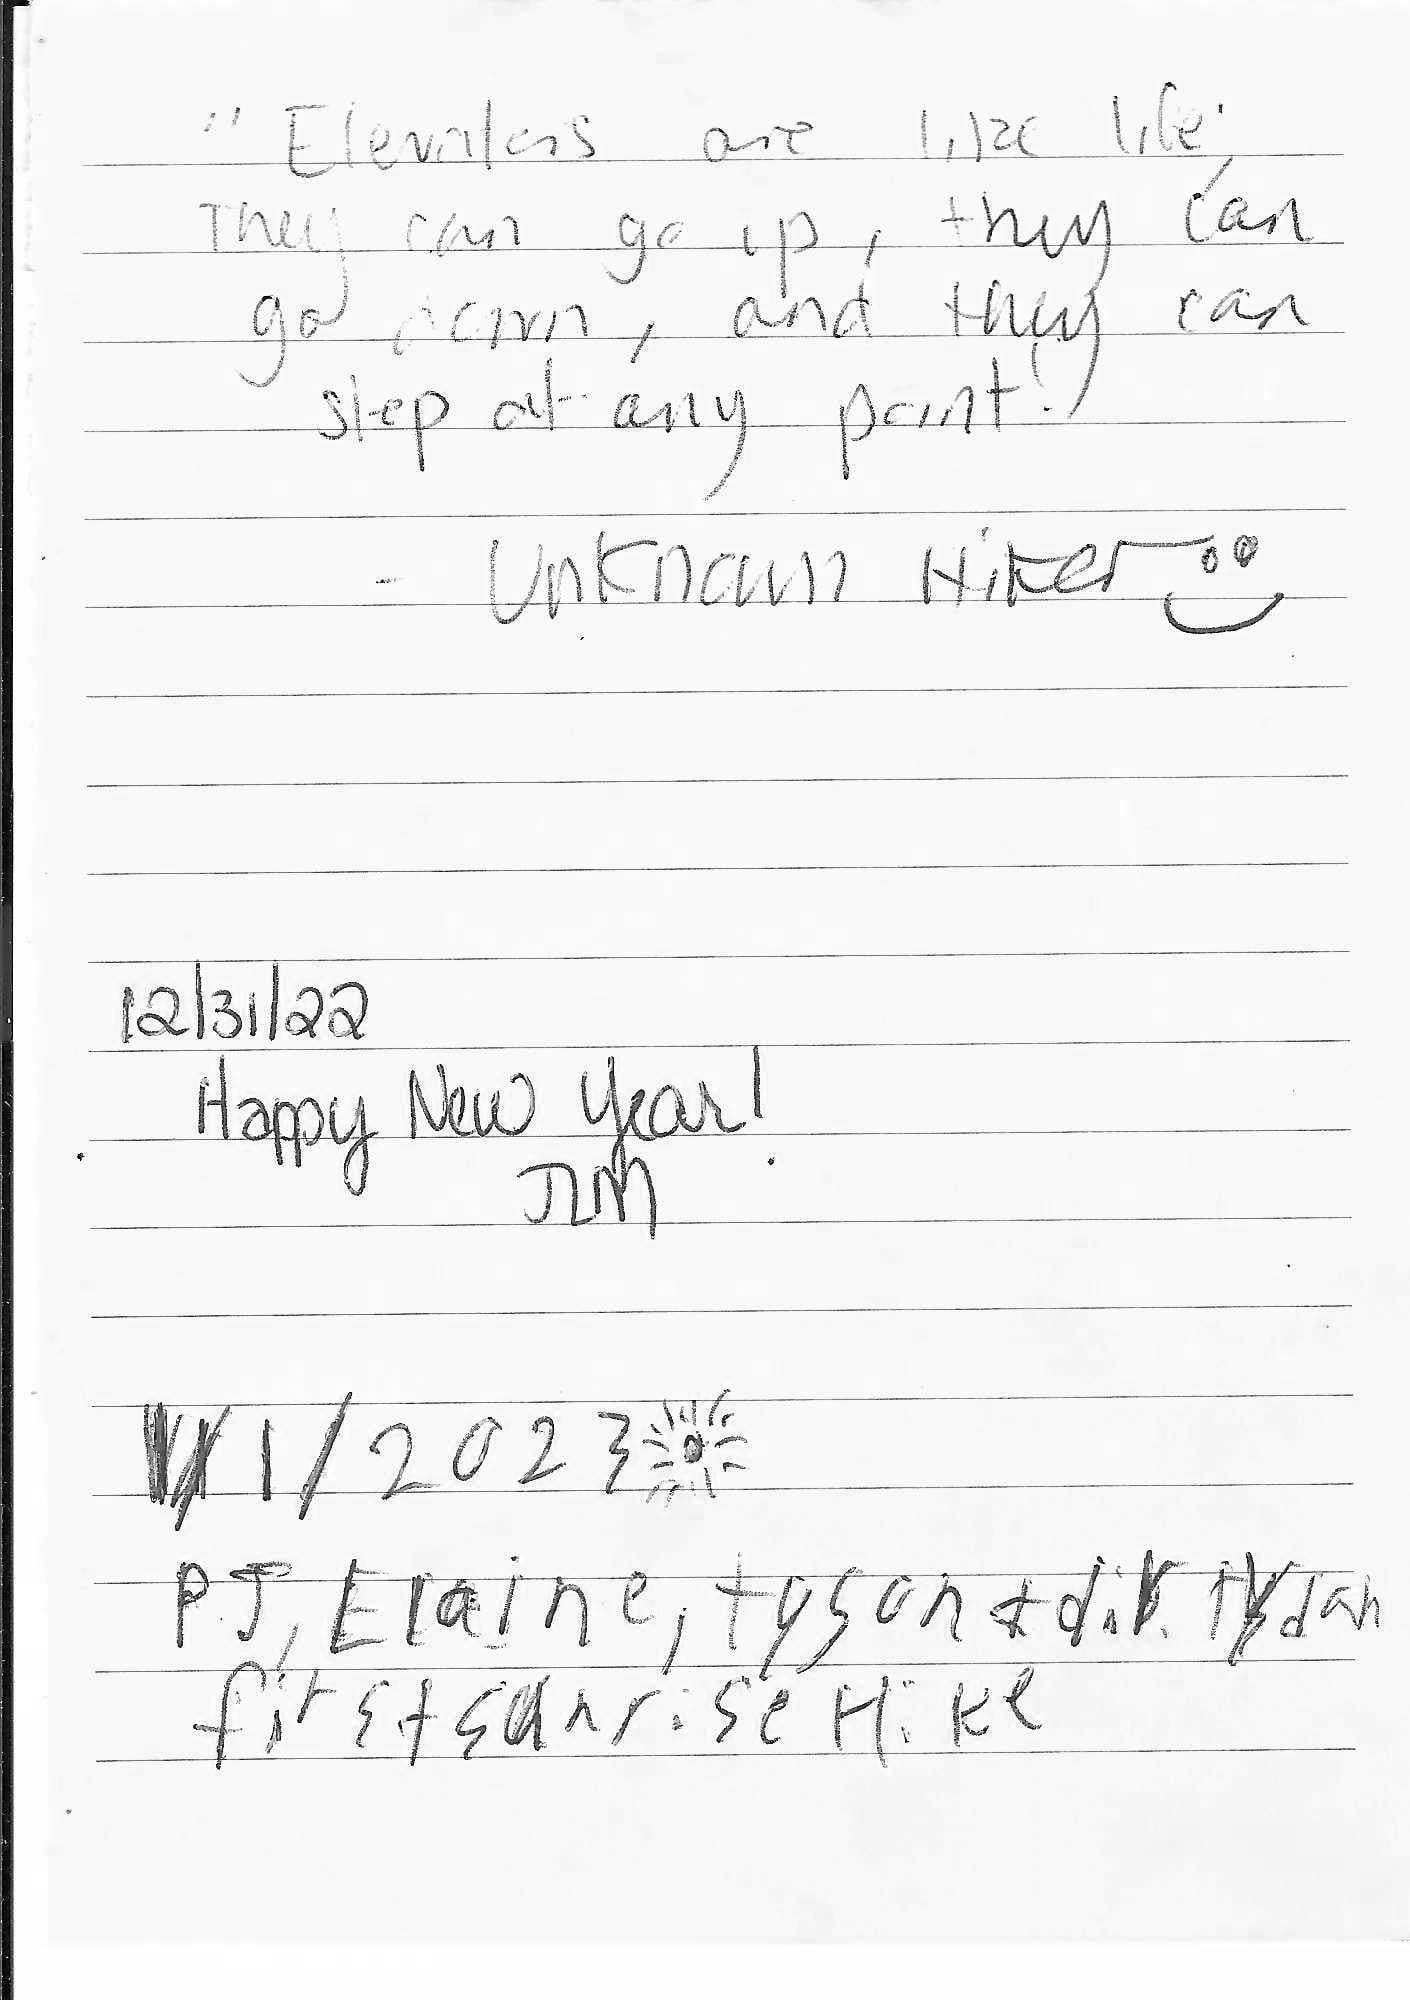 "Elevators are like life,
They can go up, they can
go down, and they can
stop at any point!"
- Unknown Hiker
12/31/22
Happy New Year!
JLM
1/1/2023
PJ, Elaine, tyson +
first sunrise Hike